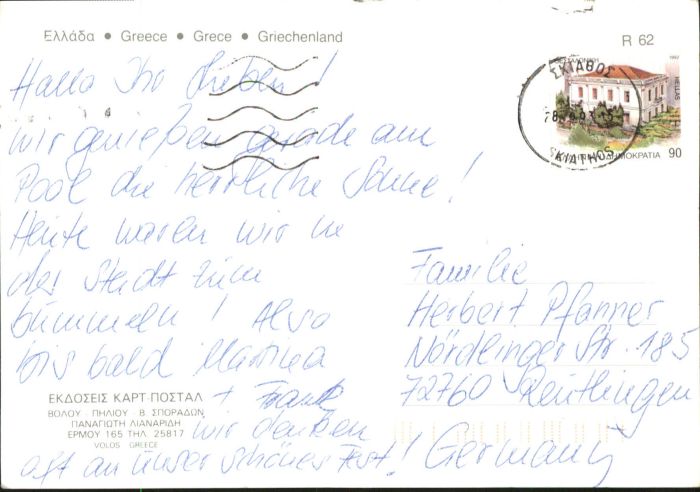 Ελλάδα • Greece • Grece • Griechenland
R 62
Hallo Ihr Lieben!
wir genießen gerade am
Pool die herrliche Sonne!
Heute waren wir in
der Stadt zum
bummeln! Also
bis bald Martina
+ Frank
wir denken
oft an unser schönes Fest!
ΕΚΔΟΣΕΙΣ ΚΑΡΤ-ΠΟΣΤΑΛ
ΒΟΛΟΥ - ΠΗΛΙΟΥ - Β. ΣΠΟΡΑΔΩΝ
ΠΑΝΑΓΙΩΤΗ ΛΙΑΝΑΡΙΔΗ
ΕΡΜΟΥ 165 ΤΗΛ. 25817
VOLOS GREECE
ΣΚΙΑΘΟΣ
SKIATHOS
1992
HELLAS
ΔΗΜΟΚΡΑΤΙΑ 90
Familie
Herbert Pfanner
Nördlinger Str. 185
72760 Reutlingen
Germany